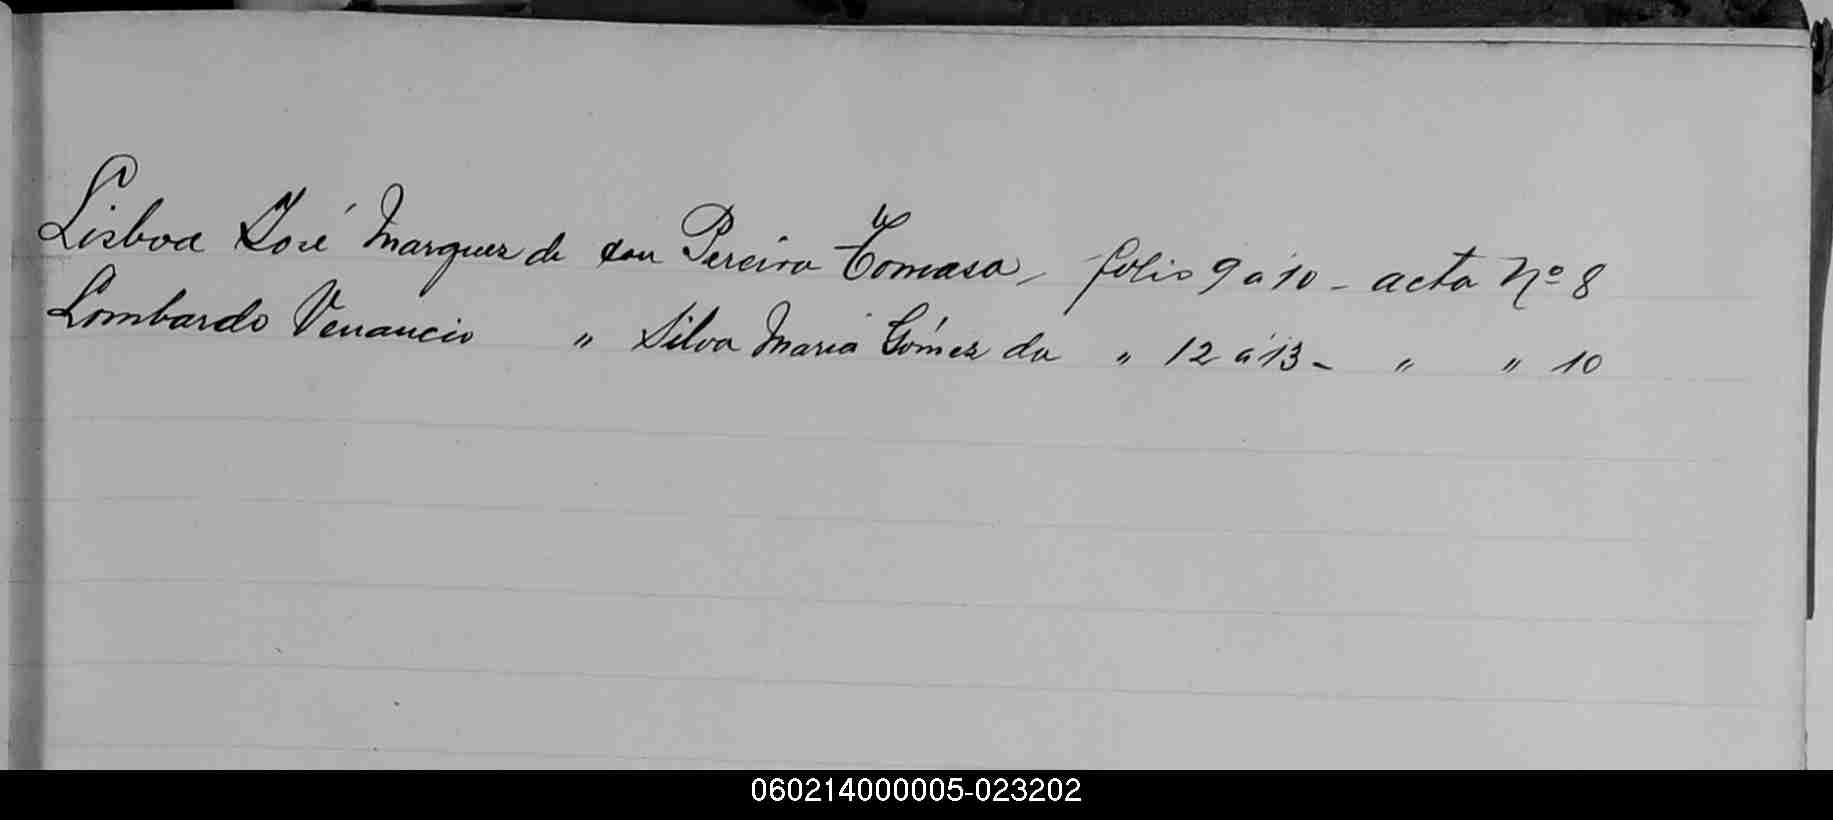 Lisboa José Marquez de con Pereira Tomasa, folio 9 a 10 - acta Nº 8
Lombardo Venancio " Silva Maria Gómez da " 12 á 13 - " " 10
060214000005-023202